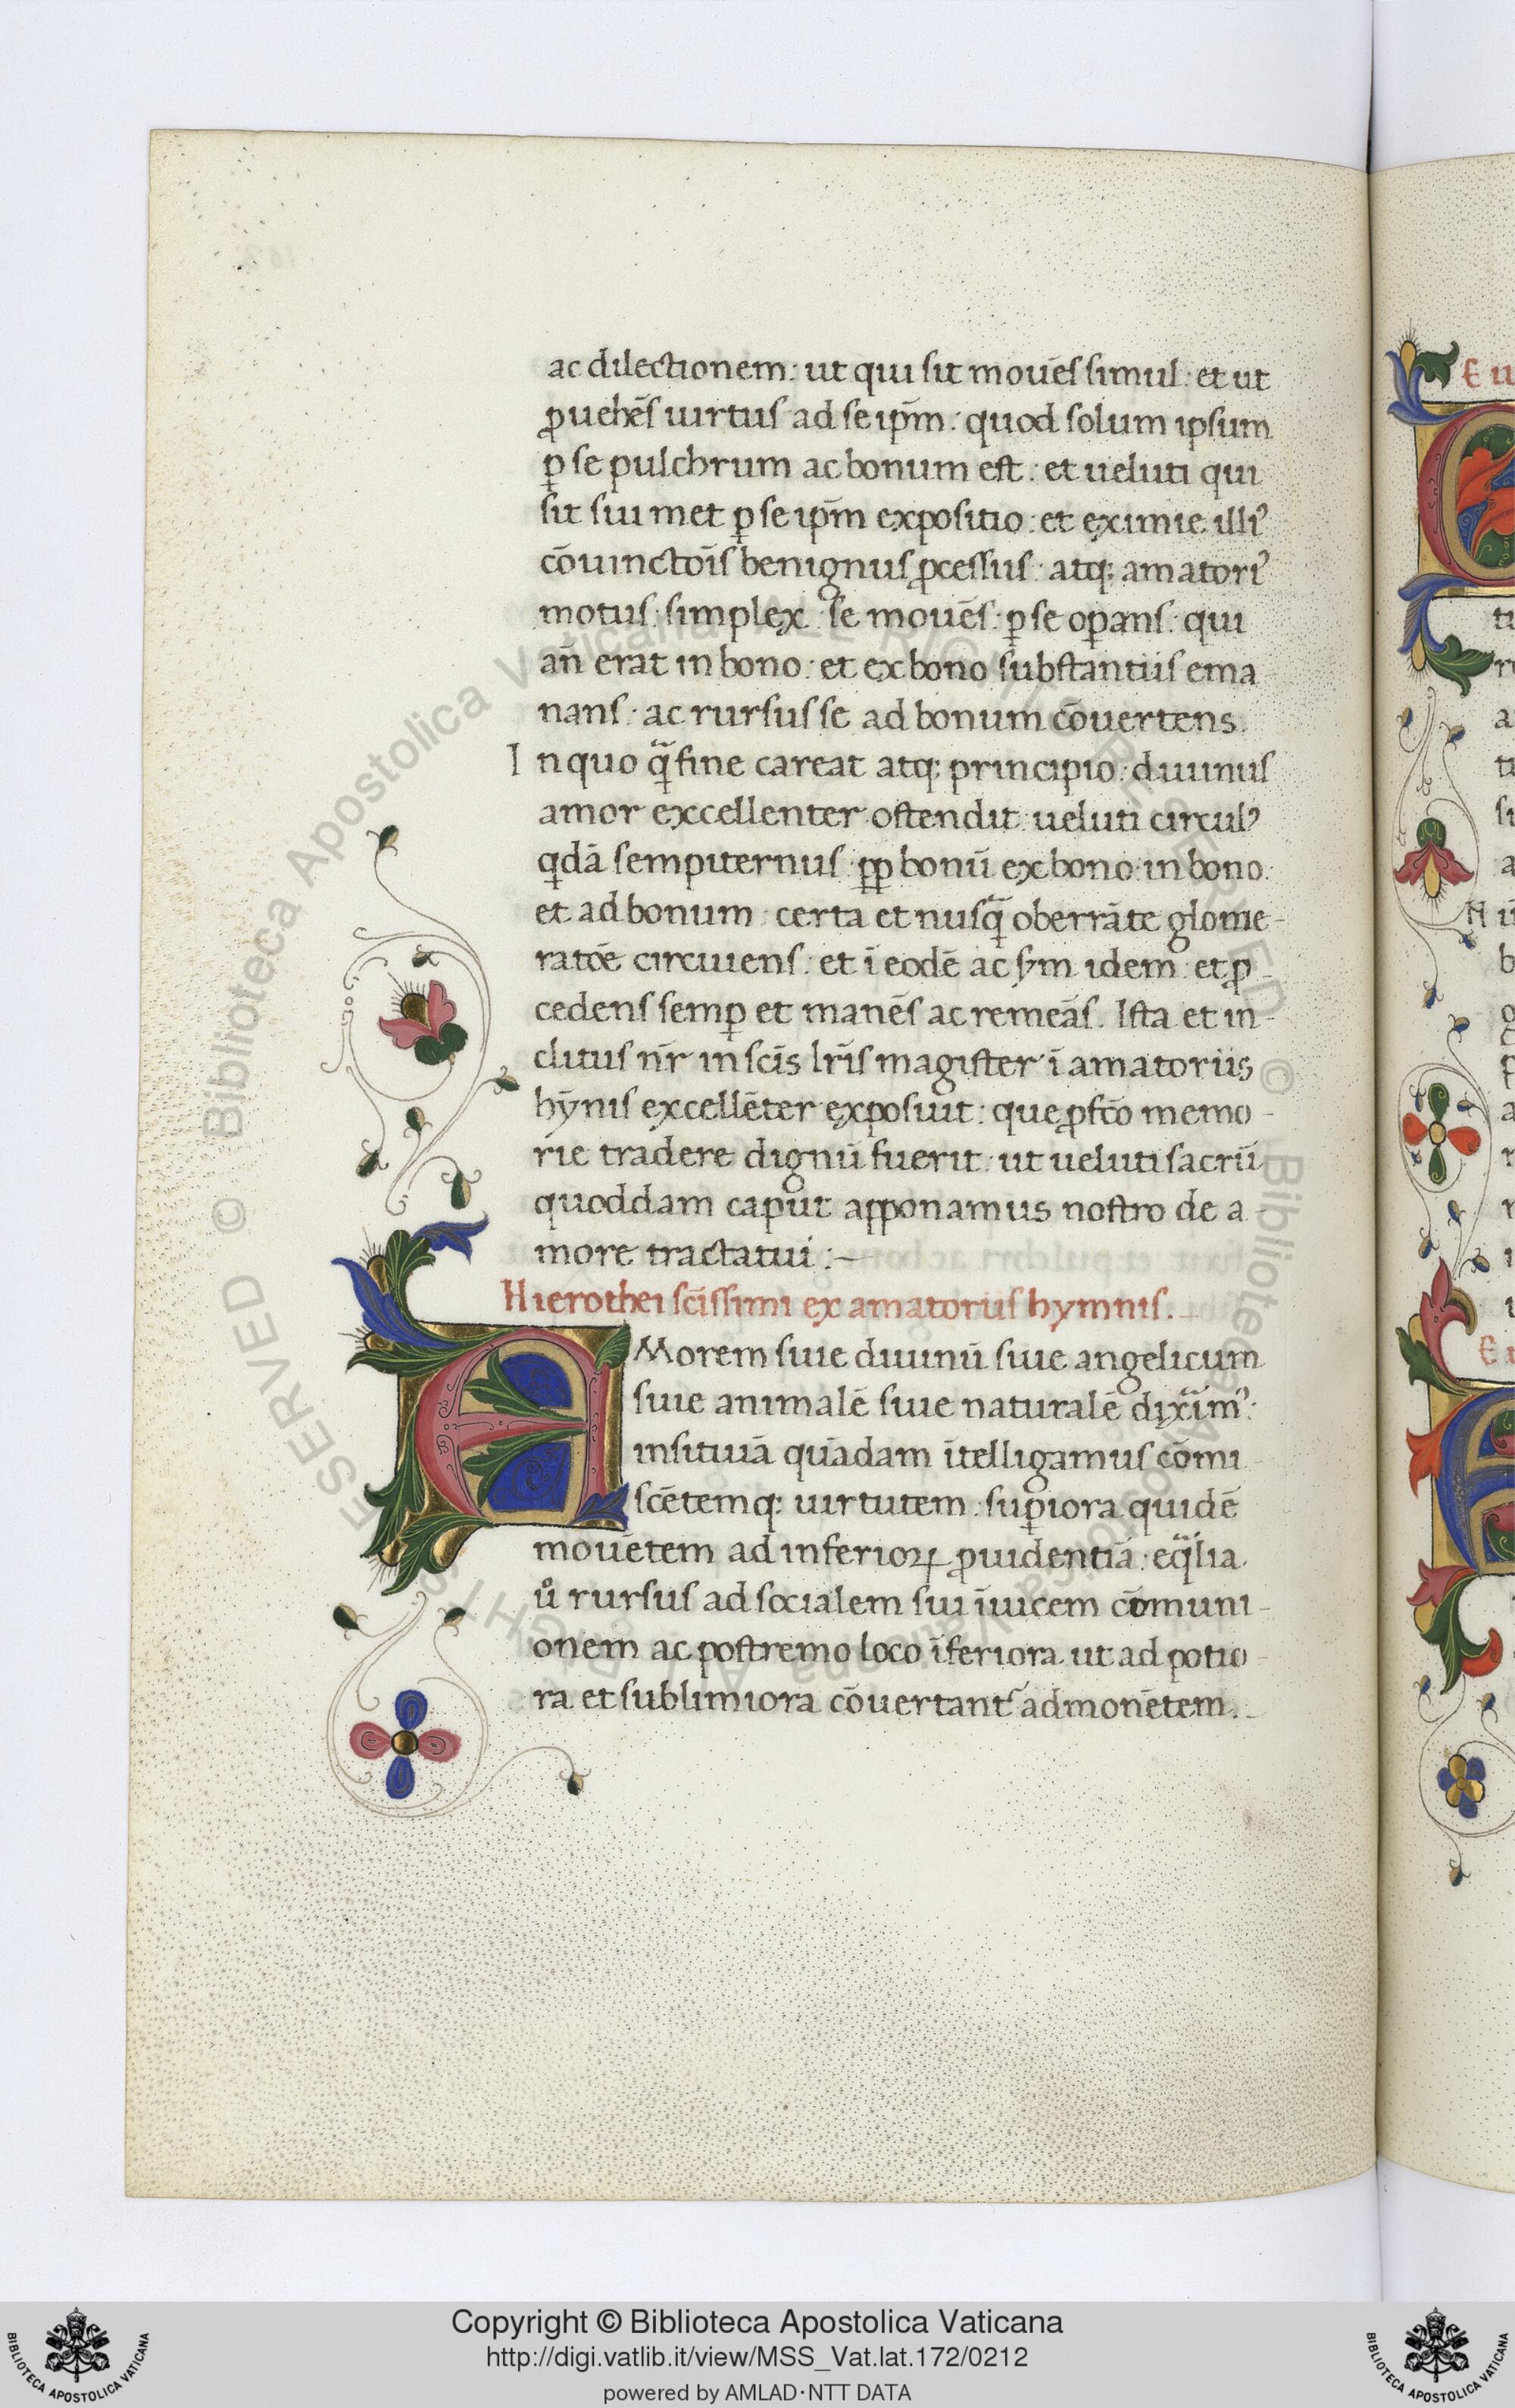 ac dilectionem: ut qui sit mouēs simul: et ut
ꝓuehēs uirtus ad se ip̄m: quod solum ipsum
ꝑ se pulchrum ac bonum est: et ueluti qui
sit sui met ꝑ se ip̄m expositio: et eximie illiꝰ
cōuinctōis benignus ꝓcessus: atq; amatoriꝰ
motus: simplex: se mouēs: ꝑ se oꝑans: qui
an̄ erat in bono: et ex bono substantiis ema-
nans: ac rursus se ad bonum cōuertens.
In quo q̄ fine careat atq; principio: diuinus
amor excellenter ostendit: ueluti circulꝰ
qdā sempiternus: pp bonū ex bono: in bono:
et ad bonum: certa et nusq̄ oberrāte glome-
ratōe circuiens: et ī eodē ac sym idem: et ꝓ-
cedens semꝑ et manēs ac remeās. Ista et in-
clitus nr̄ in scīs lr̄is magister ī amatoriis
hȳnis excellēter exposuit: que ꝓfcō memo-
rie tradere dignū fuerit: ut ueluti sacrū
quoddam caput apponamus nostro de a-
more tractatui:—
Hierothei scīssimi ex amatoriis hymnis.
AMorem siue diuinū siue angelicum
siue animalē siue naturalē dixīmꝰ:
insitiuā quādam ītelligamus cōmi-
scētemq; uirtutem: suꝑiora quidē
mouētem ad inferioꝝ ꝓuidentiā: eq̄lia
uͦ rursus ad socialem sui īuicem cōmuni-
onem ac postremo loco īferiora ut ad potio-
ra et sublimiora cōuertantʳ admonētem.
Copyright © Biblioteca Apostolica Vaticana
http://digi.vatlib.it/view/MSS_Vat.lat.172/0212
powered by AMLAD·NTT DATA